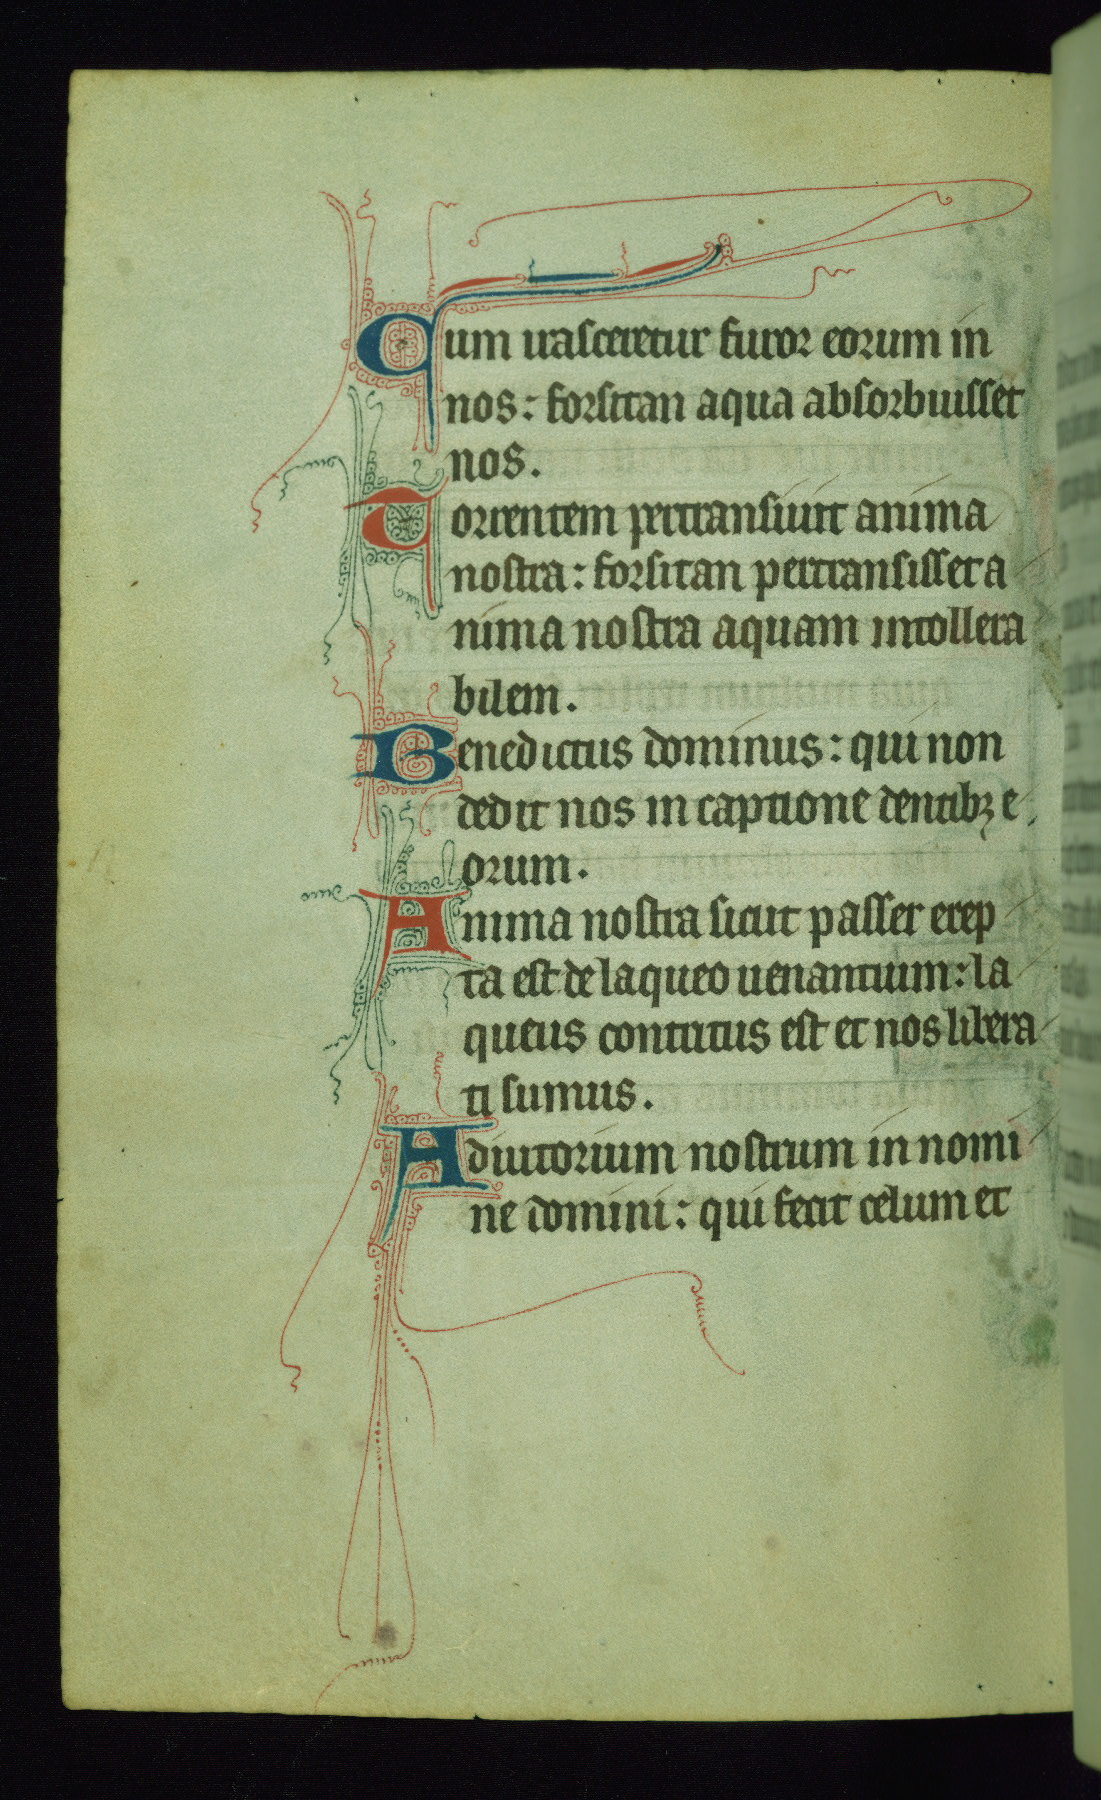 Qum irasceretur furor eorum in
nos: forsitan aqua absorbuisset
nos.
Torrentem pertransiuit anima
nostra: forsitan pertransisset a
nima nostra aquam intollera
bilem.
Benedictus dominus: qui non
dedit nos in captione dentibꝫ e
orum.
Anima nostra sicut passer erep
ta est de laqueo uenantium: la
queus contritus est et nos libera
ti sumus.
Adiutorium nostrum in nomi
ne domini: qui fecit celum et